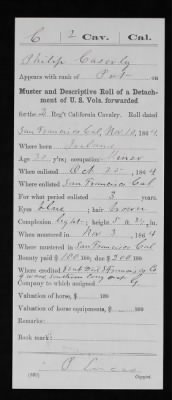 C | 2 Cav. | Cal.
Philip Casserly
Appears with rank of Pvt. on
Muster and Descriptive Roll of a Detach-
ment of U. S. Vols. forwarded
for the 2 Reg't California Cavalry. Roll dated
San Francisco Cal, Nov 10, 1864.
Where born Ireland
Age yrs; occupation Miner
When enlisted Oct 25, 1864
Where enlisted San Francisco Cal
For what period enlisted 3 years.
Eyes blue; hair brown
Complexion light; height 5 ft. in.
When mustered in Nov 3, 1864
Where mustered in San Francisco Cal
Bounty paid $ 100; due $ 200
Where credited
Company to which assigned
Valuation of horse, $ 100
Valuation of horse equipments, $ 100
Remarks:
Book mark:
(339) Copyist.